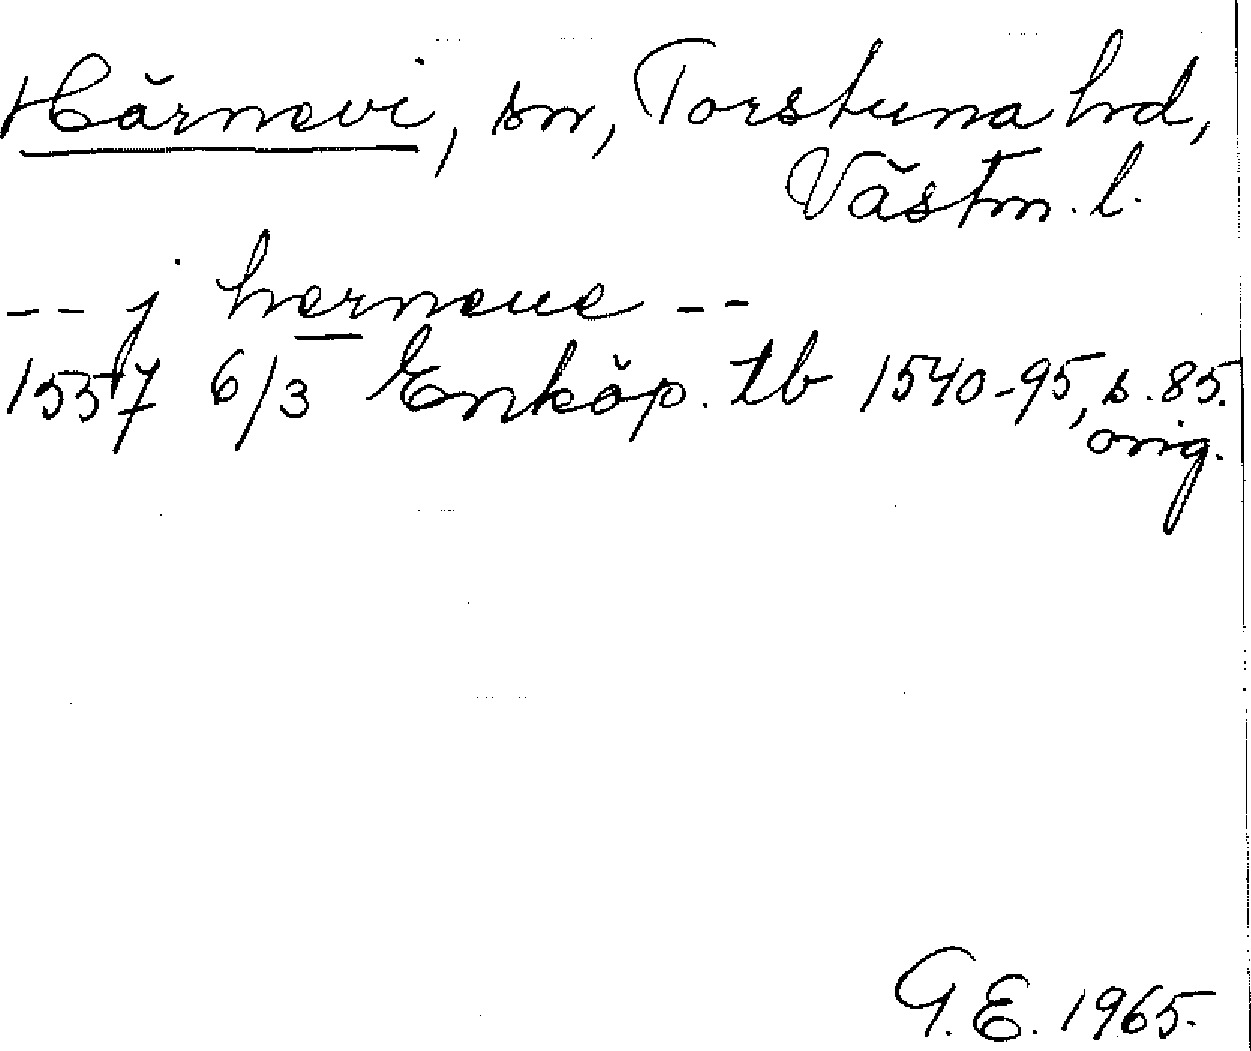 Härnevi, sn, Torstuna hd,
Västm. l.
-- j herneue --
1557 6/3 Enköp. tb 1540-95, s. 85.
orig.
G. E. 1965.